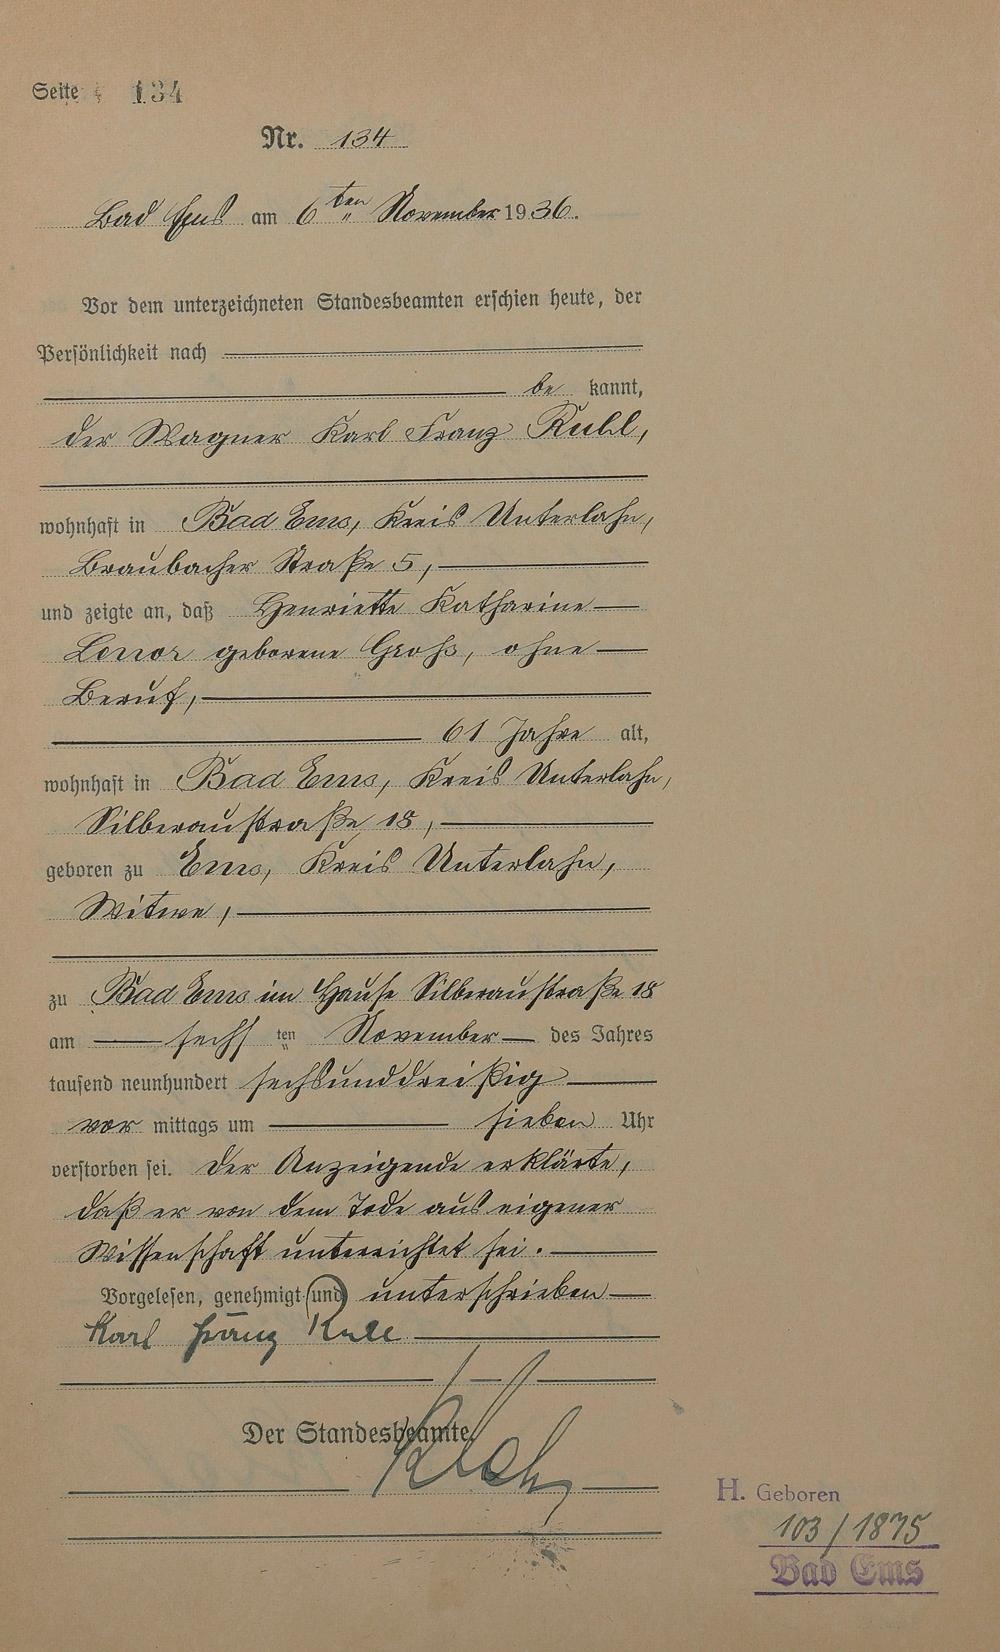 Seite 134
Nr. 134
Bad Ems am 6ten November 1936.
Vor dem unterzeichneten Standesbeamten erschien heute, der
Persönlichkeit nach
be kannt,
der Wagner Karl Franz Kull,
wohnhaft in Bad Ems, Kreis Unterlahn,
Braubacher Straße 5,
und zeigte an, daß Henriette Katharine
geborene Groß, ohne
Beruf,
61 Jahre alt,
wohnhaft in Bad Ems, Kreis Unterlahn,
Silberaustraße 18,
geboren zu Ems, Kreis Unterlahn,
Witwe,
zu Bad Ems im Hause Silberaustraße 18
am sechsten November des Jahres
tausend neunhundert sechsunddreißig
vor mittags um sieben Uhr
verstorben sei. Der Anzeigende erklärte,
daß er von dem Tode aus eigener
Wissenschaft unterrichtet sei.
Vorgelesen, genehmigt und unterschrieben
Karl Franz Kull
Der Standesbeamte.
H. Geboren
103/1875
Bad Ems